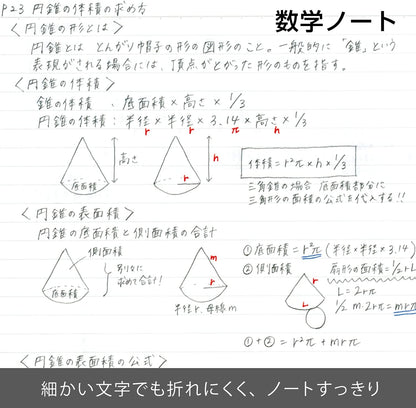 数学ノート
P23 円錐の体積の求め方
〈円錐の形とは〉
円錐とは とんがり帽子の形の図形のこと。一般的に「錐」という
表現がされる場合には、頂点がとがった形のものを指す。
〈円錐の体積〉
錐の体積 : 底面積×高さ×1/3
円錐の体積 : 半径×半径×3.14×高さ×1/3
r r π h
高さ
底面積
r
h
体積=r²π×h×1/3
三角錐の場合 底面積部分に
三角形の面積の公式を代入する!!
〈円錐の表面積〉
円錐の底面積と側面積の合計
側面積
底面積
別々に
求めて合計!
m
r
半径r、母線m
①底面積=r²π (半径×半径×3.14)
②側面積 扇形の面積=1/2rL
r
L
L=2rπ
1/2 m・2rπ=mrπ
①+②=r²π+mrπ
〈円錐の表面積の公式〉
細かい文字でも折れにくく、ノートすっきり